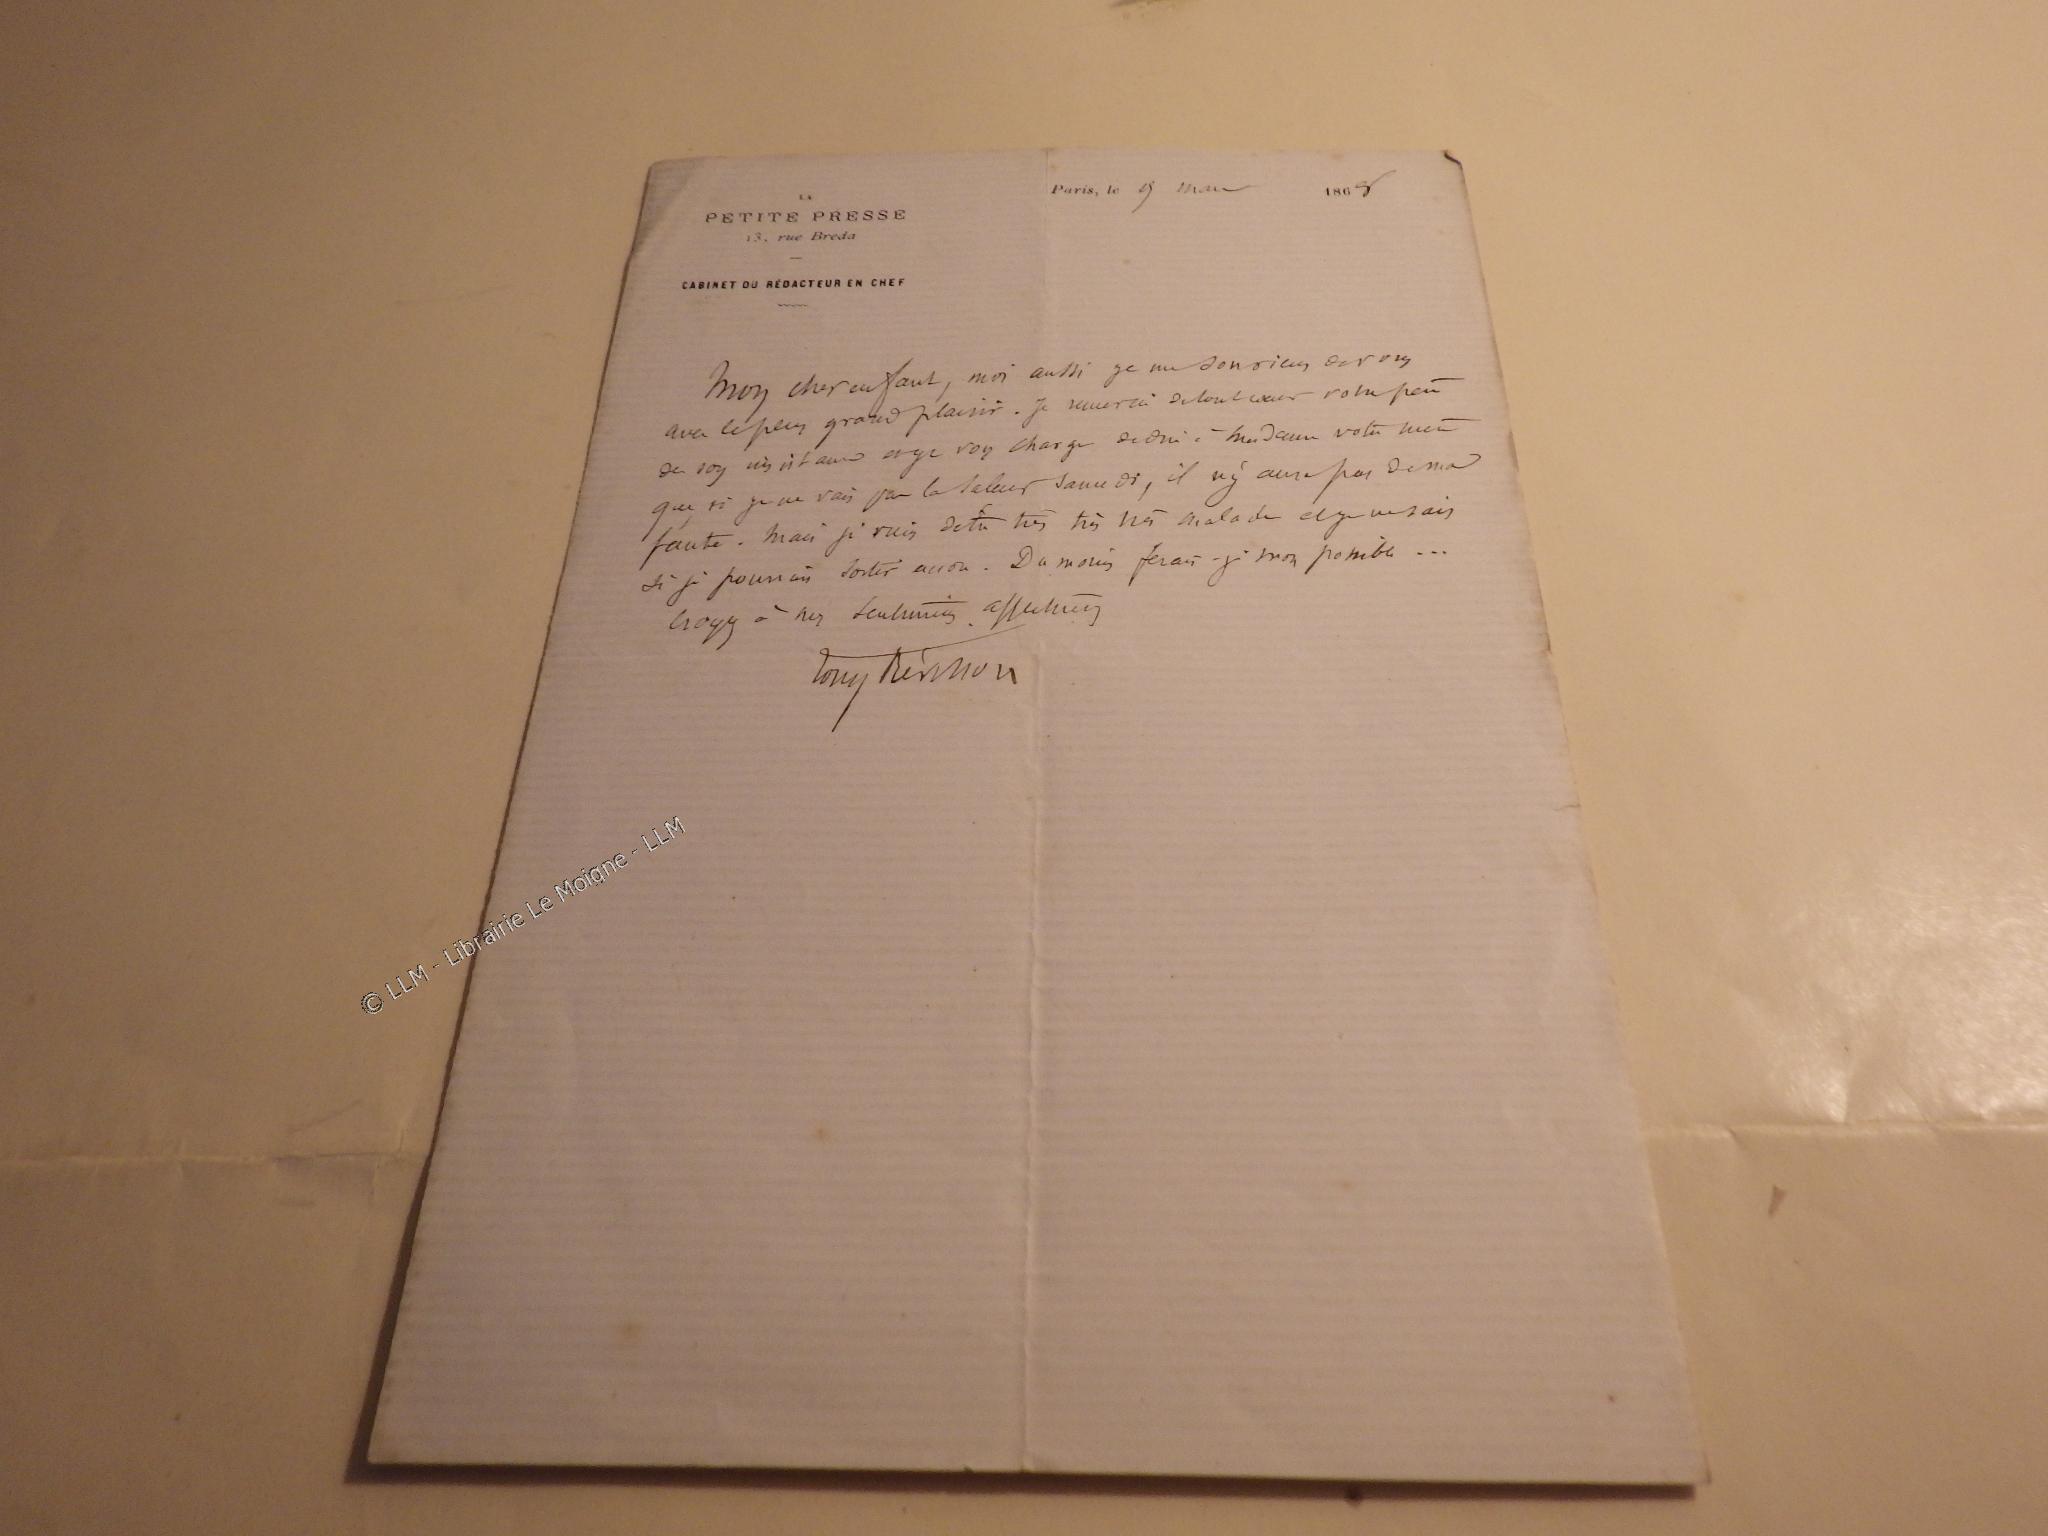 LA
PETITE PRESSE
13, rue Breda
CABINET DU RÉDACTEUR EN CHEF
Paris, le 19 mars 1868
Mon cher enfant, moi aussi je me souviens de vous
avec le plus grand plaisir. Je remercie de tout cœur votre père
de son insistance et je vous charge de dire à Madame votre mère
que si je ne vais pas la saluer samedi, il n'y aura pas de ma
faute. Mais je viens d'être très très très malade et je ne sais
si je pourrai sortir encore. Du moins ferai-je mon possible ...
Croyez à mes sentiments affectueux
Tony Révillon
© LLM - Librairie Le Moigne - LLM